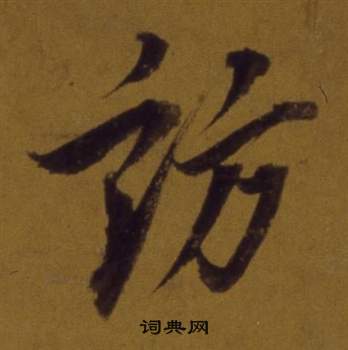 訪
词典网